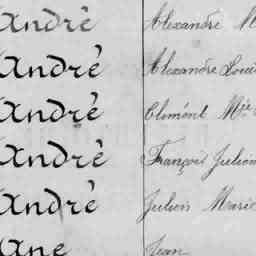 André Alexandre M
André Alexandre Loui
André Clément Mie
André François Julien
André Julien Marie
Ane Jean